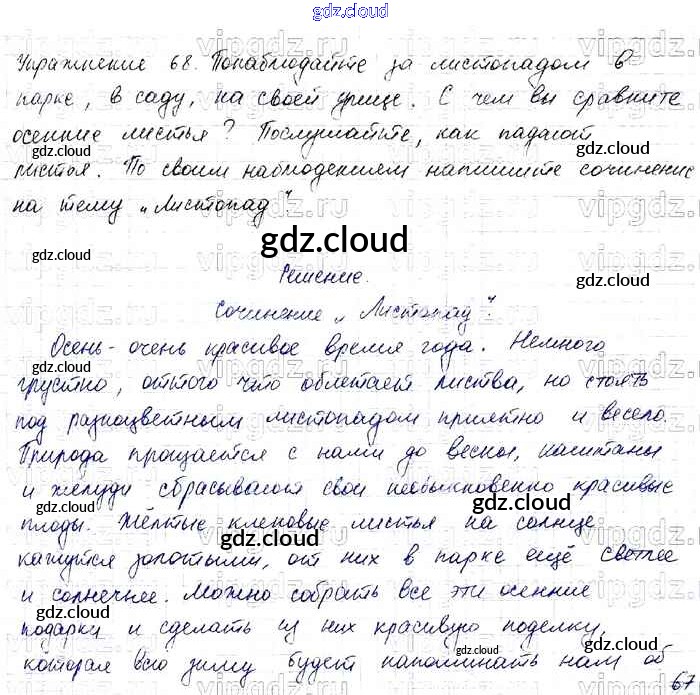 gdz.cloud
Упражнение 68. Понаблюдайте за листопадом в
парке, в саду, на своей улице. С чем вы сравните
осенние листья? Послушайте, как падают
gdz.cloud gdz.cloud
листья. По своим наблюдениям напишите сочинение
на тему „Листопад".
gdz.cloud gdz.cloud gdz.cloud
Решение.
Сочинение „Листопад".
Осень - очень красивое время года. Немного
gdz.cloud gdz.cloud
грустно, оттого что облетает листва, но стоять
под разноцветным листопадом приятно и весело.
Природа прощается с нами до весны, каштаны
gdz.cloud gdz.cloud
и желуди сбрасывают свои необыкновенно красивые
плоды. Жёлтые кленовые листья на солнце
gdz.cloud gdz.cloud gdz.cloud
кажутся золотыми, от них в парке ещё светлее
и солнечнее. Можно собрать все эти осенние
подарки и сделать из них красивую поделку,
gdz.cloud gdz.cloud
которая всю зиму будет напоминать нам об
67